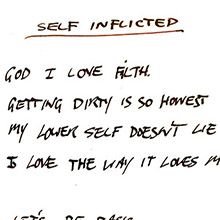 SELF INFLICTED
GOD I LOVE FILTH.
GETTING DIRTY IS SO HONEST
MY LOWER SELF DOESN'T LIE
I LOVE THE WAY IT LOVES M
LET'S BE